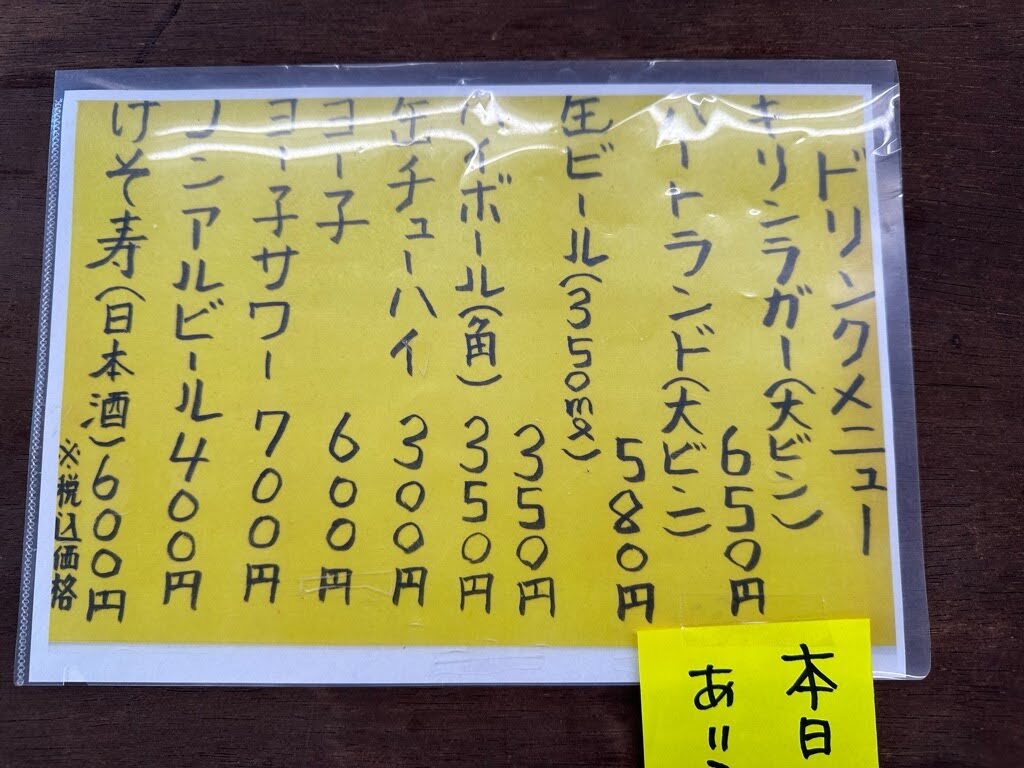 ドリンクメニュー
キリンラガー(大ビン)
650円
ハートランド(大ビン)
580円
缶ビール(350ml)
350円
ハイボール(角) 350円
缶チューハイ 300円
ヨー子 600円
ヨー子サワー 700円
ノンアールビール400円
けそ寿(日本酒)600円
※税込価格
本日
あり